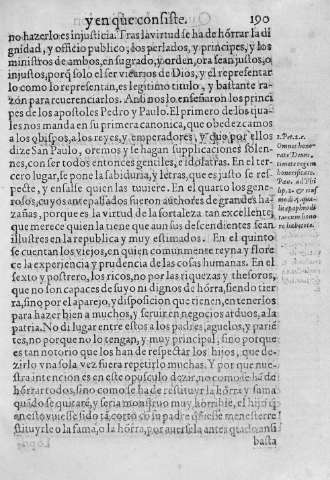 y en que consiste. 190
no hazerlo es injusticia. Tras la virtud se ha de hõrrar la di
gnidad, y officio publico, los perlados, y principes, y los
ministros de ambos, en su grado, y orden, ora sean justos, o
injustos, porq̃ solo el ser vicarios de Dios, y el representar
lo como lo representan, es legitimo titulo, y bastante ra-
zón para reuerenciarlos. Ansi nos lo enseñaron los princi
pes de los apostoles Pedro y Paulo. El primero de los qua
les nos manda en su primera canonica, que obedezcamos
a los obispos, a los reyes, y emperadores, y que por ellos
dize San Paulo, oremos y se hagan supplicaciones solen-
nes, con ser todos entonces gentiles, e idolatras. En el ter-
cero lugar, se pone la sabiduria, y letras, que es justo se res-
pecte, y ensalse quien las tuuiere. En el quarto los gene-
rosos, cuyos antepassados fueron authores de grandes ha-
zañas, porque es la virtud de la fortaleza tan excellente,
que merece quien la tiene que aun sus descendientes sean
illustres en la republica y muy estimados. En el quinto
se cuentan los viejos, en quien comunmente reyna y flore
ce la experiencia y prudencia de las cosas humanas. En el
sexto y postrero, los ricos, no por las riquezas y thesoros,
que no son capaces de suyo ni dignos de hõrra, siendo tier
ra, sino por el aparejo, y disposicion que tienen, en tenerlos
para hazer bien a muchos, y seruir en negocios arduos, a la
patria. No di lugar entre estos a los padres, aguelos, y pariẽ
tes, no porque no lo tengan, y muy principal, sino porque
es tan notorio que los han de respectar los hijos, que de-
zirlo vna sola vez fuera repetirlo muchas. Y por que nue-
stra intencion es en este opusculo dezir, no como se ha de
hõrrar todos, sino como se ha de restituyr la hõrra y fama
quãdo se quitare, y seria monstruo muy horrible, el hijo q̃
en esto viuiesse
stituyrle o la fama, o la hõrra, por auersela antes quitado ansi
basta
1. Pet. 2. c.
Omnes hono
rate Deum
timete regem
honorificate.